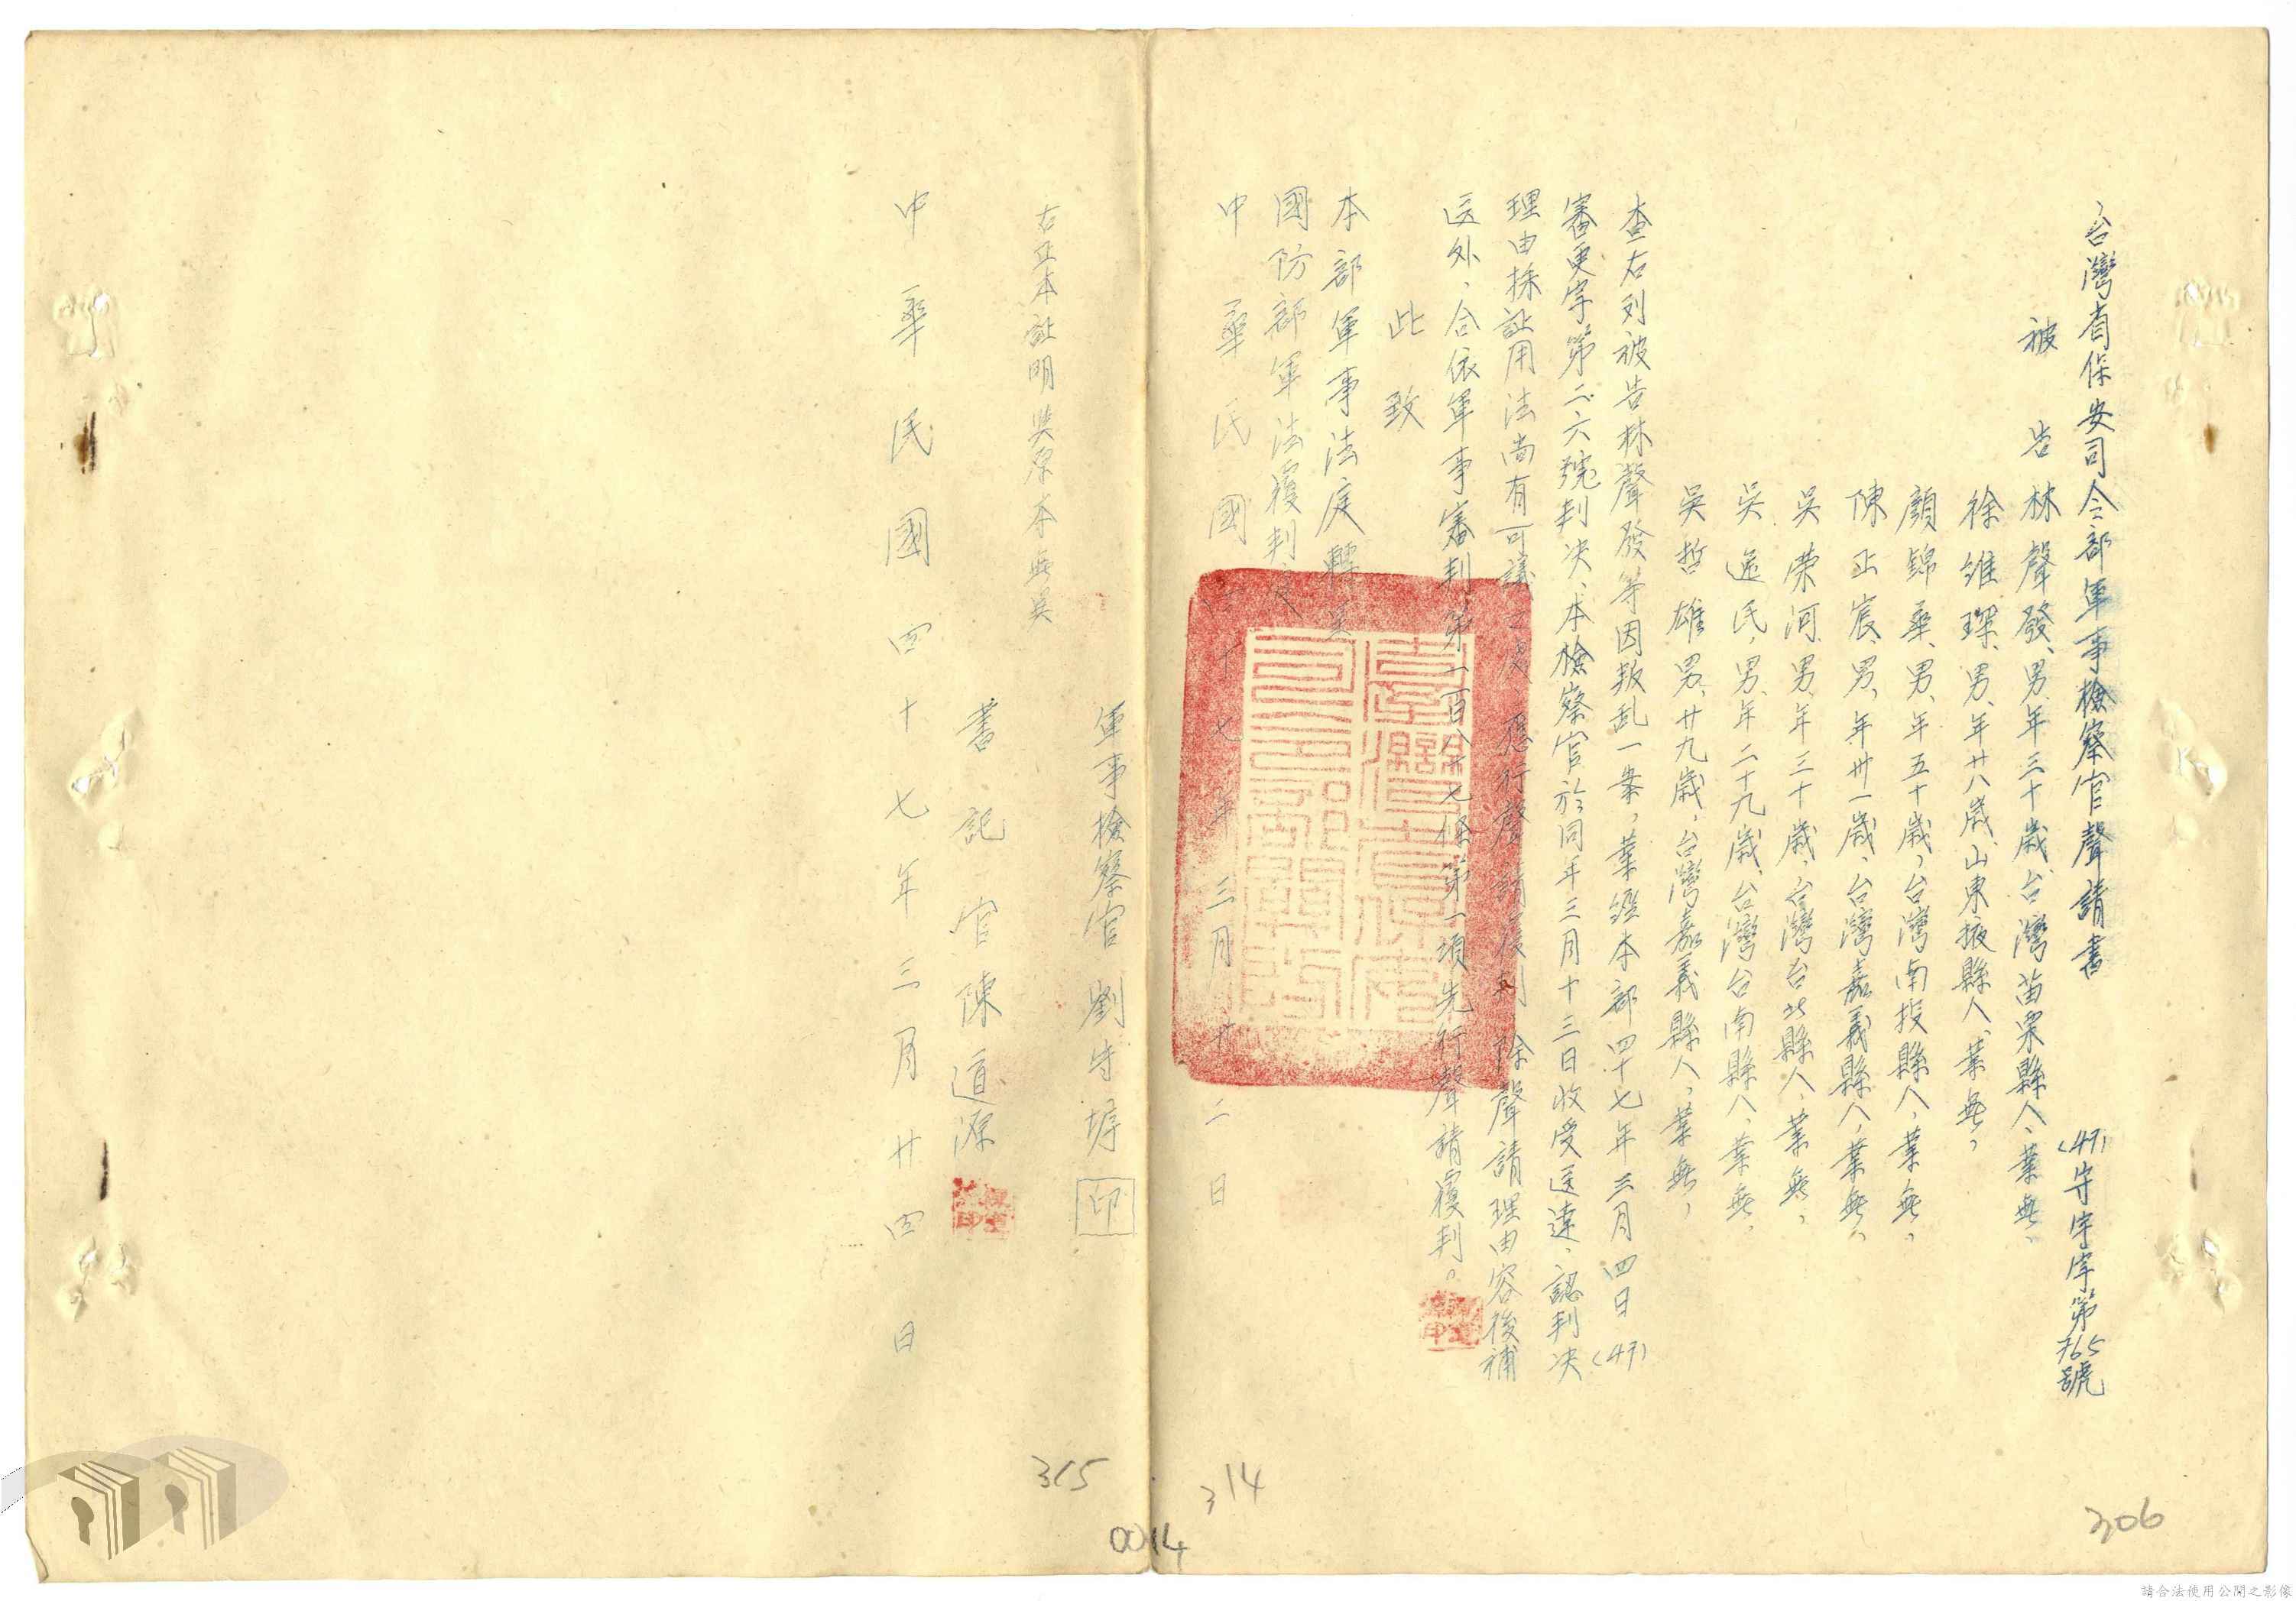 台灣省保安司令部軍事檢察官聲請書 (47)守守字第765號
被告 林聲發、男、年三十歲、台灣苗栗縣人、業無、
徐維琛、男、年廿八歲、山東掖縣人、業無、
顏錦華、男、年五十歲、台灣南投縣人、業無、
陳正宸、男、年卅一歲、台灣嘉義縣人、業無、
吳荣河、男、年三十歲、台灣台北縣人、業無、
吳逸民、男、年二十九歲、台灣台南縣人、業無、
吳哲雄、男、廿九歲、台灣嘉義縣人、業無、
查右列被告林聲發等因叛乱一案、業經本部四十七年三月四日(47)
審更字第二六號判决、本檢察官於同年三月十三日收受送達、認判决
理由採証用法尚有可議之處、應行聲請覆判 除聲請理由容後補
送外、合依軍事審判第一百八十七條第一項先行聲請覆判。
此致
本部軍事法庭轉呈
國防部軍法覆判庭
中華民國四十七年三月廿二日
軍事檢察官 劉守塝 印
右正本証明與原本無異
書記官 陳道源
中華民國四十七年三月廿四日
306
314
315
0014
請合法使用公開之影像